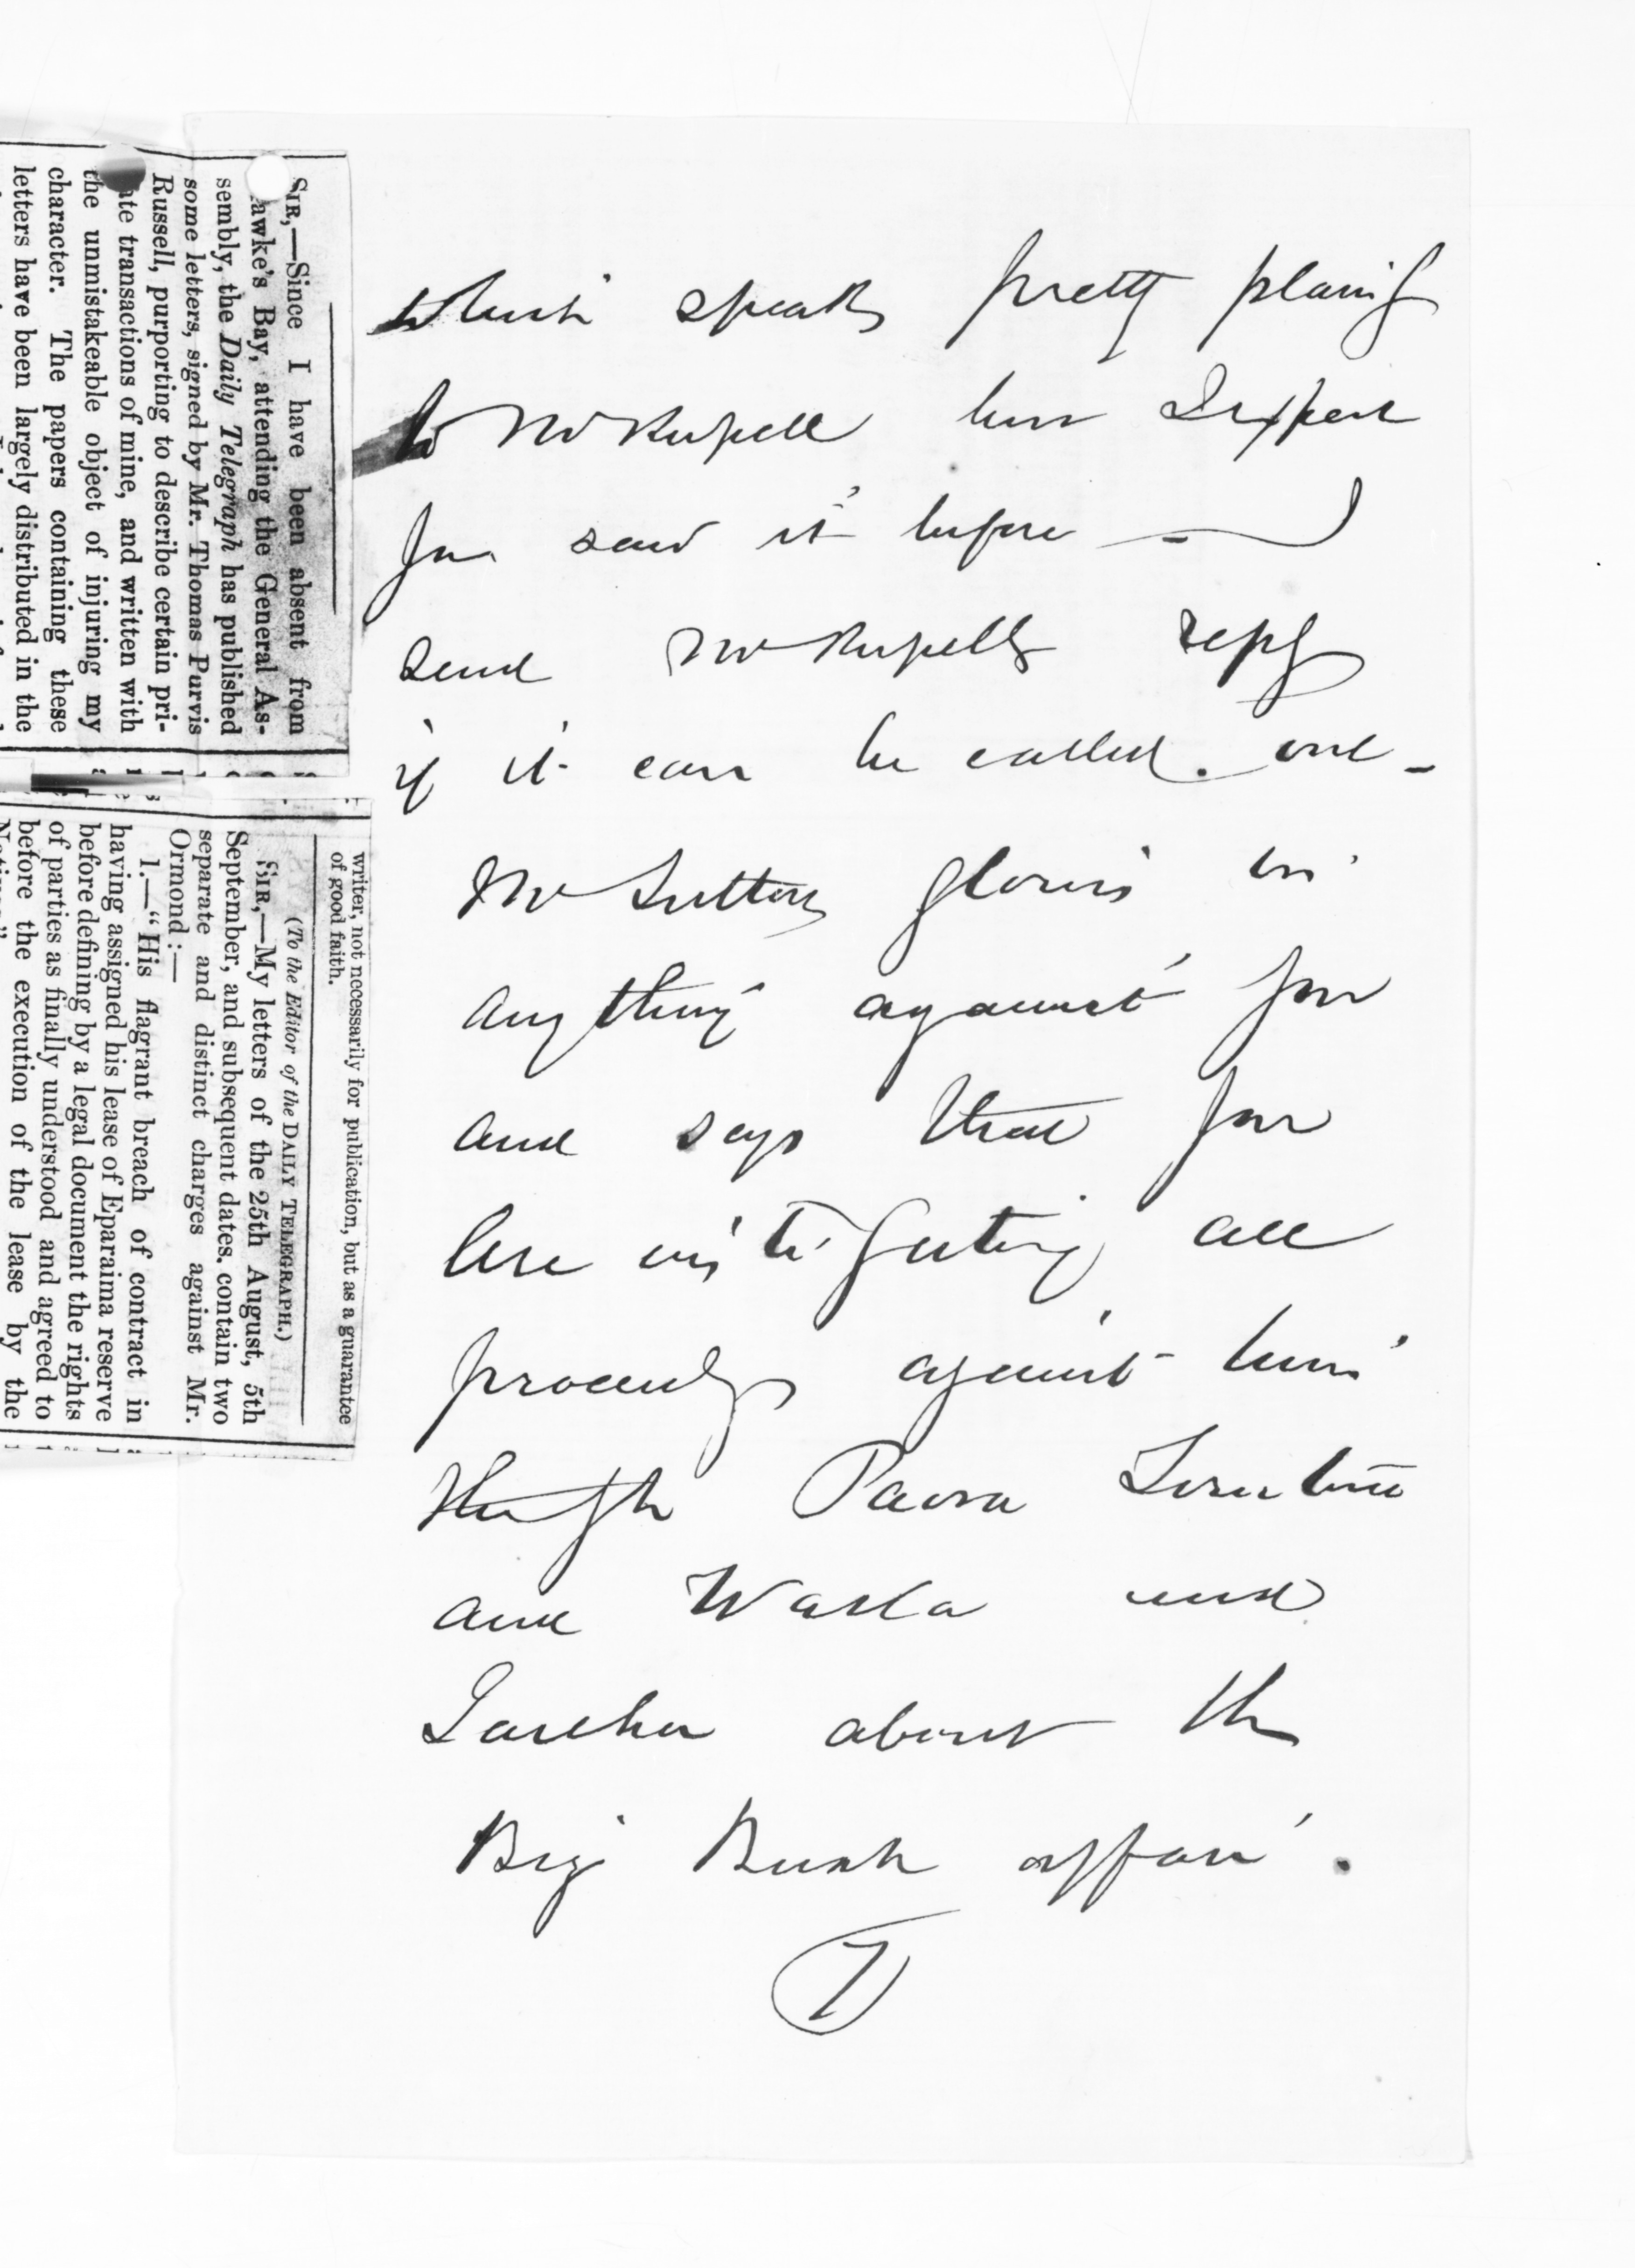 SIR,—Since I have been absent from
awke's Bay, attending the General As-
sembly, the Daily Telegraph has published
some letters, signed by Mr. Thomas Purvis
Russell, purporting to describe certain pri-
ate transactions of mine, and written with
the unmistakeable object of injuring my
character. The papers containing these
letters have been largely distributed in the
writer, not necessarily for publication, but as a guarantee
of good faith.
(To the Editor of the DAILY TELEGRAPH.)
SIR,—My letters of the 25th August, 5th
September, and subsequent dates, contain two
separate and distinct charges against Mr.
Ormond:—
1.—"His flagrant breach of contract in
having assigned his lease of Eparaima reserve
before defining by a legal document the rights
of parties as finally understood and agreed to
before the execution of the lease by the
which speaks pretty plainly
to Mr Russell but I expect
you saw it before — I
send Mr Russells reply
if it can be called one -
Mr Sutton glories in
anything against you
and says that you
are instigating all
proceedgs against him
through Paora
and Waka and
Tareha about the
Big Bush affair.